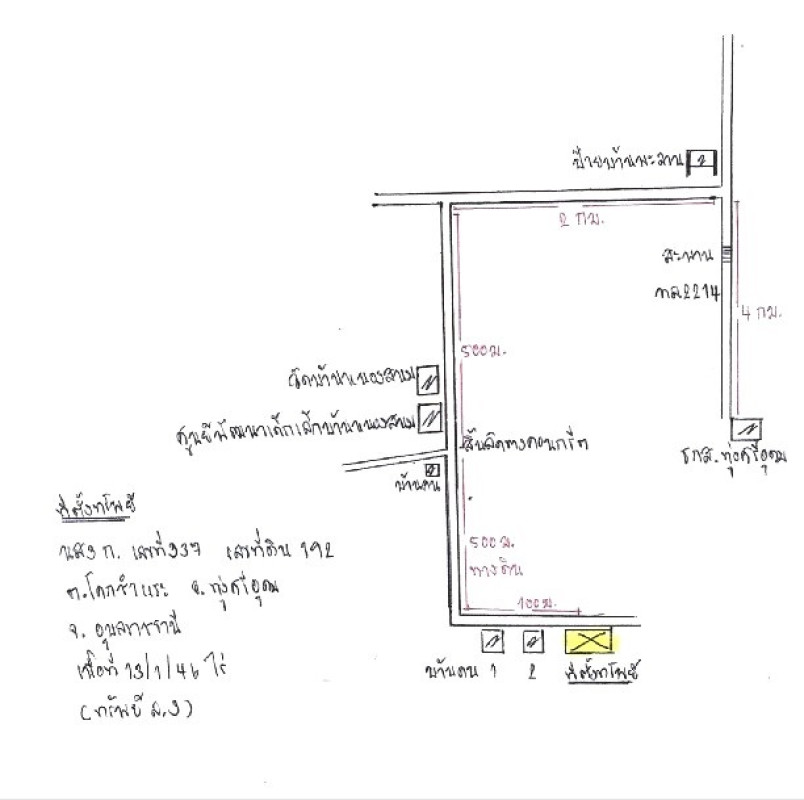 ป้ายบ้านพะลาน
2 กม.
สะพาน
ทล2214
4 กม.
500 ม.
วัดบ้านหนองสนม
ศูนย์พัฒนาเด็กเล็กบ้านหนองสนม
สิ้นสุดทางคอนกรีต
ธกส.ทุ่งศรีอุดม
บ้านคน
ที่ตั้งทรัพย์
นส3 ก. เลขที่337 เลขที่ดิน 192
ต.โคกชำแระ อ.ทุ่งศรีอุดม
จ. อุบลราชธานี
เนื้อที่ 13/1/46 ไร่
(ทรัพย์ ล.3)
500 ม.
ทางดิน
100 ม.
บ้านคน 1 2 ที่ตั้งทรัพย์